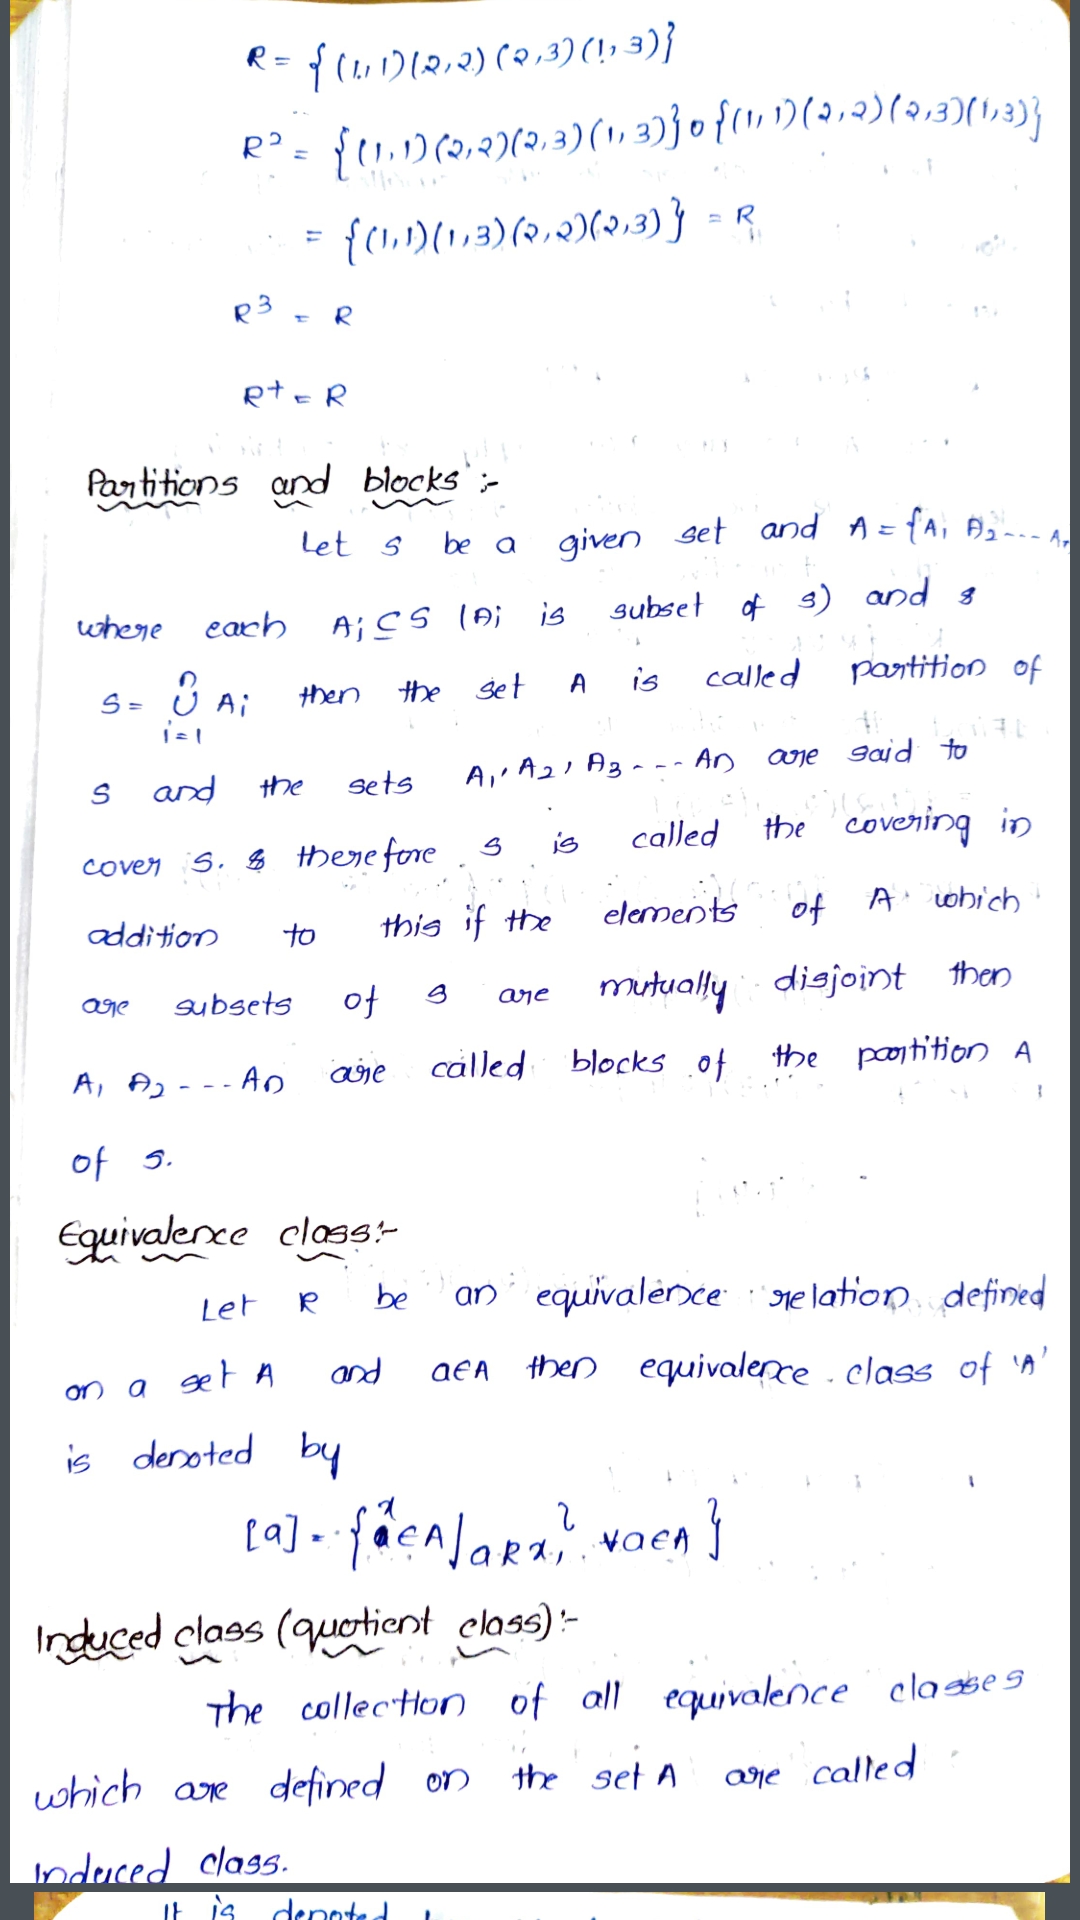 R = { (1,1)(2,2)(2,3)(1,3)}
R² = {(1,1)(2,2)(2,3)(1,3)} o {(1,1)(2,2)(2,3)(1,3)}
= {(1,1)(1,3)(2,2)(2,3)} = R
R³ = R
R+ = R
Partitions and blocks :-
Let s be a given set and A = {A1 A2 --- An
where each Ai ⊆ S (Ai is subset of s) and s
S = n∪i=1 Ai then the set A is called partition of
s and the sets A1, A2, A3 --- An are said to
cover s. therefore s is called the covering in
addition to this if the elements of A which
are subsets of s are mutually disjoint then
A1 A2 --- An are called blocks of the partition A
of s.
Equivalence class:-
Let R be an equivalence relation defined
on a set A and a∈A then equivalence class of 'A'
is denoted by
[a] = {x∈A / aRx, ∀a∈A }
Induced class (quotient class) :-
The collection of all equivalence classes
which are defined on the set A are called
Induced class.
It is denoted